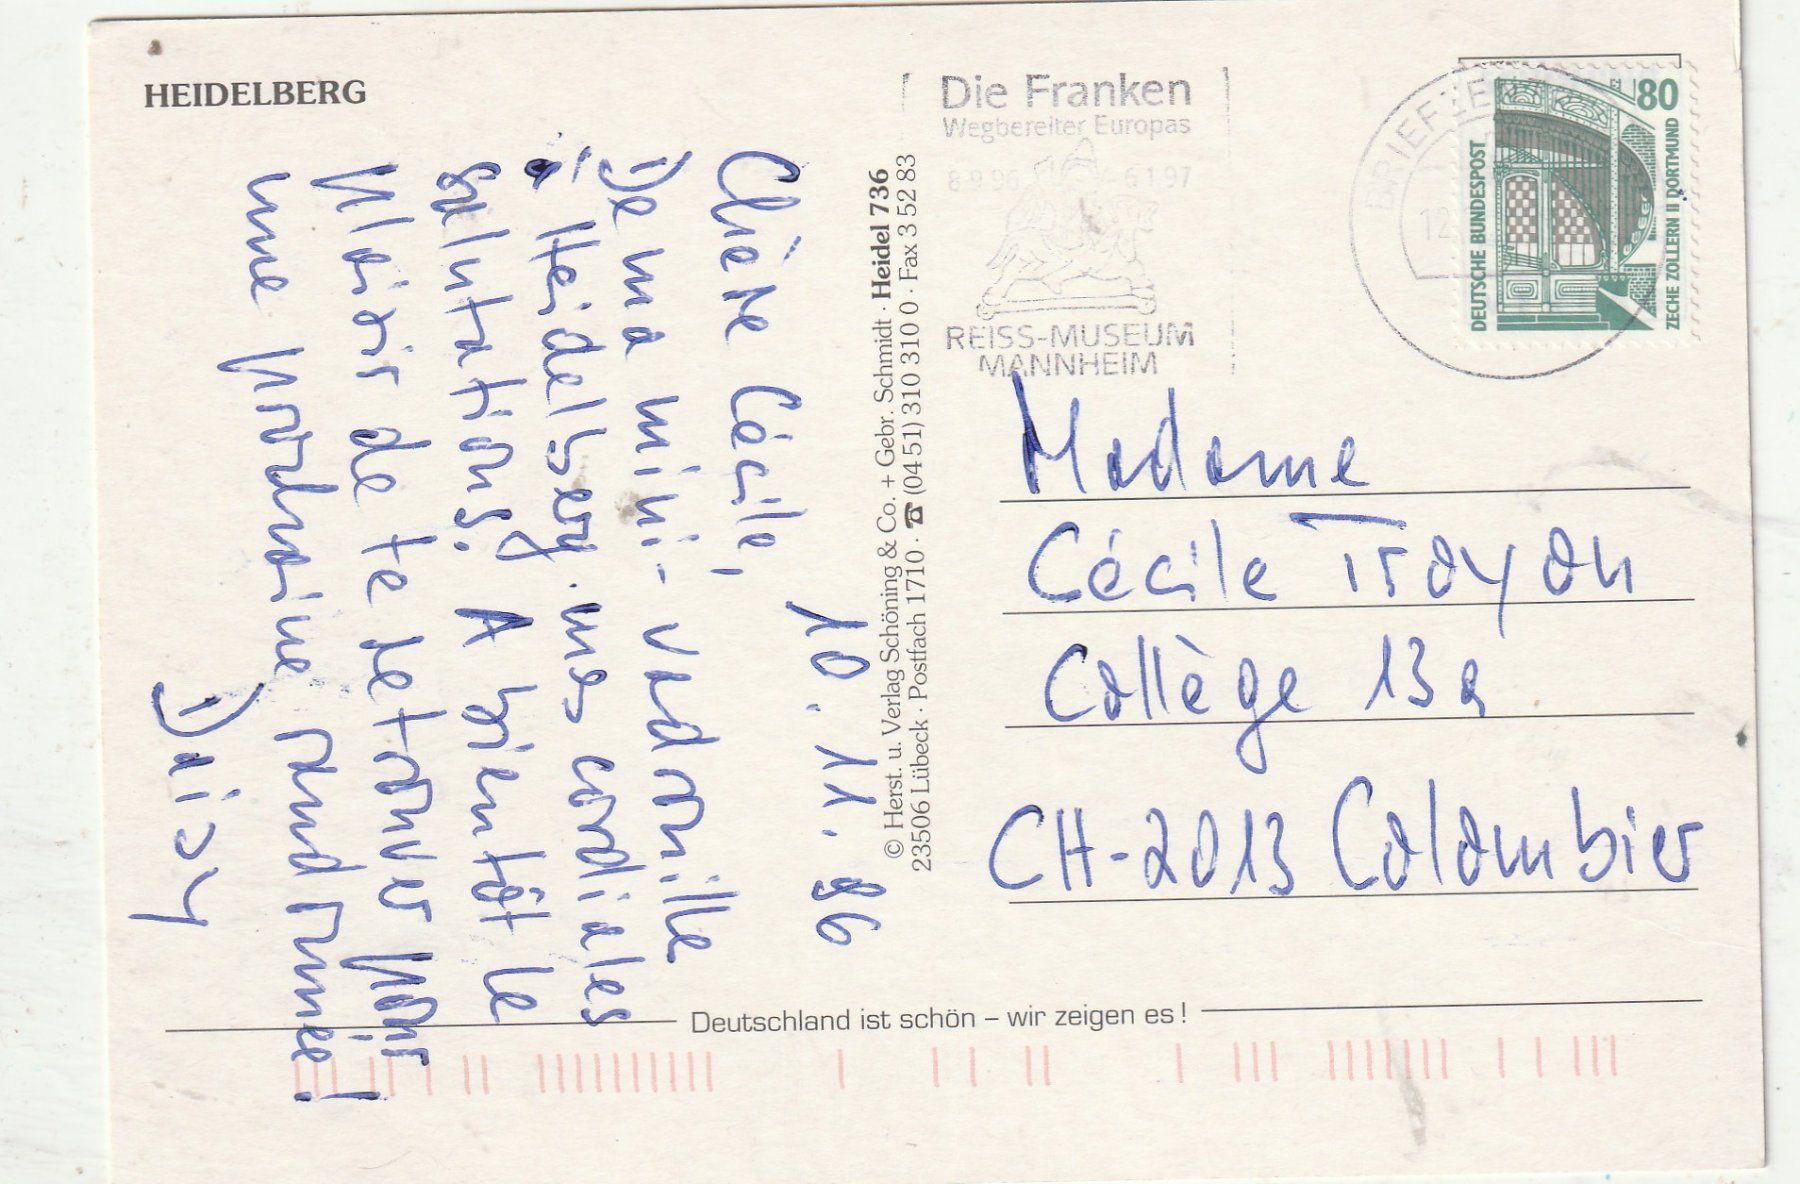 HEIDELBERG
10.11.96
Chère Cécile,
De ma mini-vadrouille
à Heidelberg mes cordiales
salutations. A bientôt le
plaisir de te retrouver pour
une prochaine randonnée!
Daisy
© Herst. u. Verlag Schöning & Co. + Gebr. Schmidt · Heidel 736
23506 Lübeck · Postfach 1710 · ☎ (04 51) 310 310 0 · Fax 3 52 83
Die Franken
Wegbereiter Europas
8.9.96 6.1.97
REISS-MUSEUM
MANNHEIM
80
DEUTSCHE BUNDESPOST
ZECHE ZOLLERN II DORTMUND
12
Madame
Cécile Troyon
Collège 13a
CH-2013 Colombier
Deutschland ist schön – wir zeigen es!